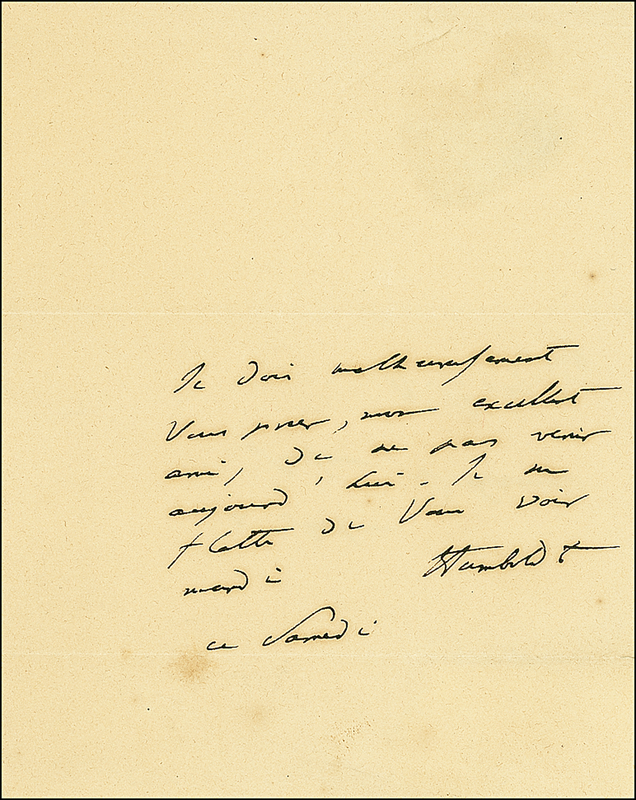 Je dois malheureusement
Vous prier, mon excellent
ami, de ne pas venir
aujourd'hui. Je me
flatte de Vous voir
mardi Humboldt
ce Samedi